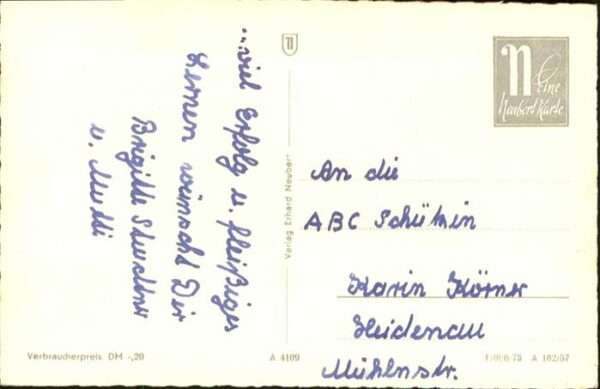 ...viel Erfolg u. fleißiges
Lernen wünscht Dir
Brigitte
u. Mutti
n
Verlag Erhard Neubert
n
Eine
Neubert Karte
An die
ABC Schützin
Karin Körner
Heidenau
Mühlnstr.
Verbraucherpreis DM -,20
A 4109
A 162/57